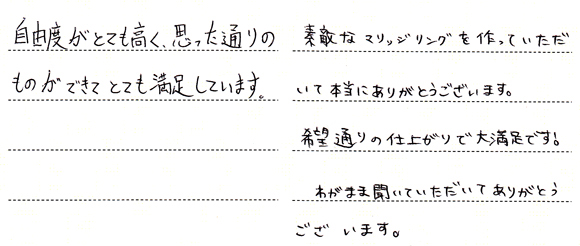 自由度がとても高く、思った通りの
ものができてとても満足しています。
素敵なマリッジリングを作っていただ
いて本当にありがとうございます。
希望通りの仕上がりで大満足です!
わがまま聞いていただいてありがとう
ございます。